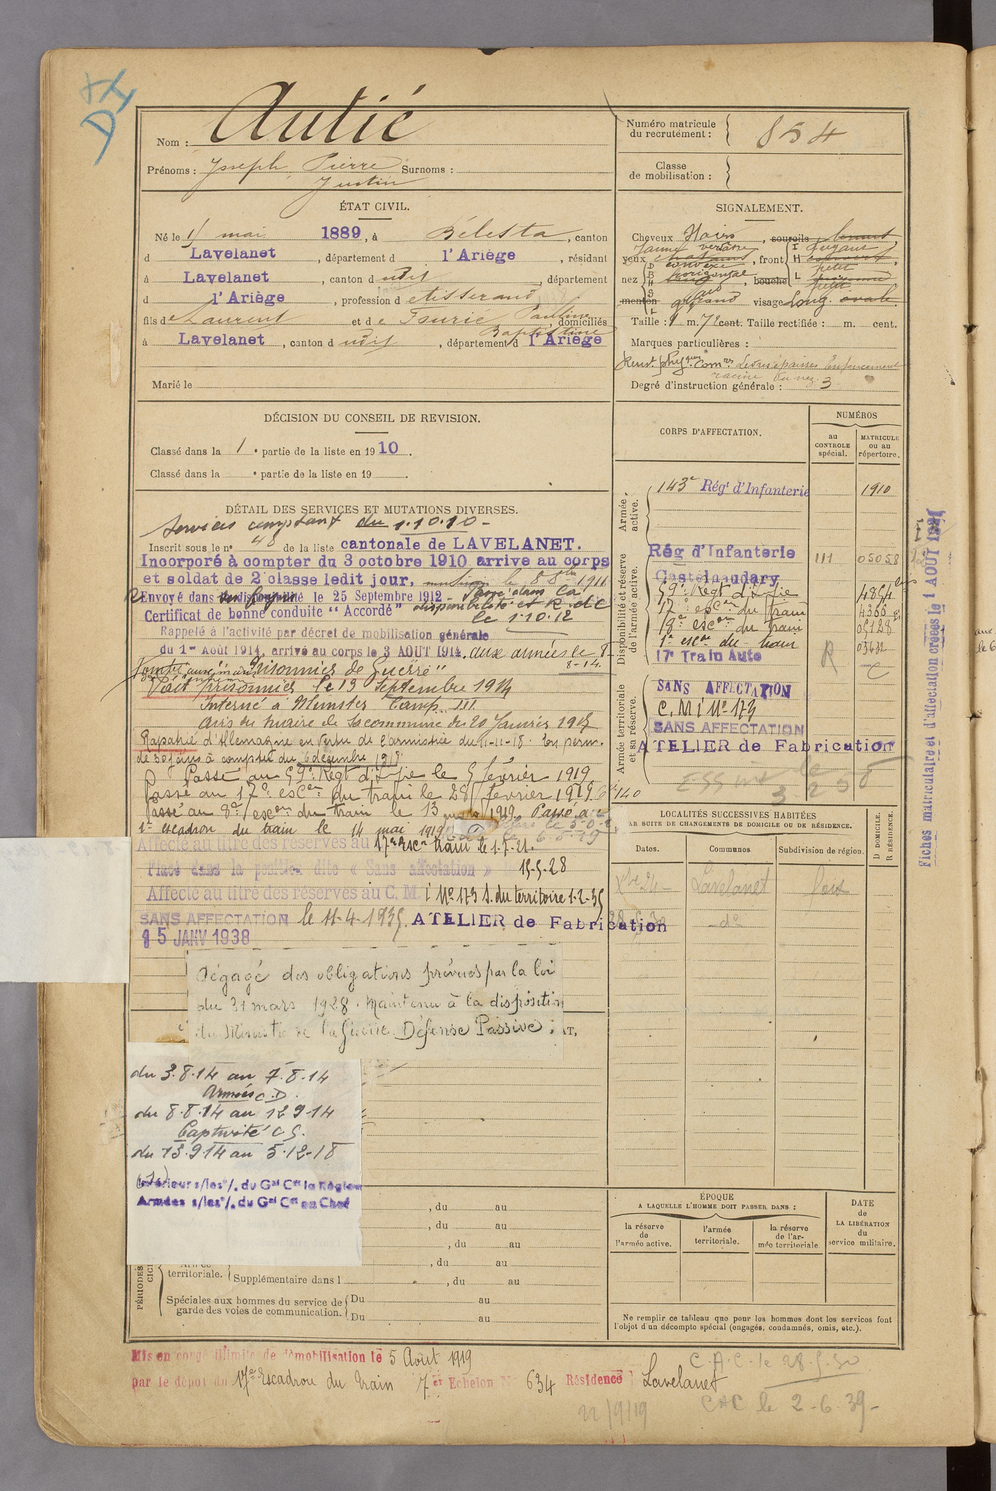 Nom : Autié
Prénoms : Joseph Pierre Surnoms :
Justin
ÉTAT CIVIL.
Né le mai 1889, à Bélesta, canton
d Lavelanet, département d l'Ariège, résidant
à Lavelanet, canton d udit, département
d l'Ariège, profession de tisserand
fils de Laurent et de Tourié Pauline
Baptistine, domiciliés
à Lavelanet, canton d udit, département d l'Ariège
Marié le
DÉCISION DU CONSEIL DE REVISION.
Classé dans la 1e partie de la liste en 1910.
Classé dans la e partie de la liste en 19
DÉTAIL DES SERVICES ET MUTATIONS DIVERSES.
Services comptant du 1.10.10-
Inscrit sous le n° 48 de la liste cantonale de LAVELANET.
Incorporé à compter du 3 octobre 1910 arrive au corps
et soldat de 2e classe ledit jour, le 8 8bre 1911
Envoyé dans la disponibilité le 25 Septembre 1912 - Passé dans la
Certificat de bonne conduite "Accordé" disponibilité et R. de l'A.
le 1.10.12
Rappelé à l'activité par décret de mobilisation générale
du 1er Août 1914, arrivé au corps le 3 AOUT 1914. aux armées le 8-
8-14.
Tombé aux mains "Prisonnier de Guerre"
Fait prisonnier le 13 Septembre 1914
Interné à Munster Camp III
avis du maire de sa commune du 20 Janvier 1915
Rapatrié d'Allemagne en vertu de l'armistice du 11-11-18. En perm.
de 30 jours à compter du 6 décembre 1918
Passé au 59e Régt d'Inf.ie le 5 février 1919
Passé au 17e escon du train le 28 février 1919
Passé au 8e escon du train le 13 mars 1919 Passé au
1er escadron du train le 14 mai 1919
Affecté au titre des réserves au 17e esc. train le 1.7.21
Placé dans la position dite « Sans affectation » 15-5-28
Affecté au titre des réserves au C. M. I N° 173 S. du territoire 1-2-35
SANS AFFECTATION le 11-4-1935 ATELIER de Fabrication
15 JANV 1938
Dégagé des obligations prévues par la loi
du 31 mars 1928. Maintenu à la disposition
du Ministre de la Guerre Défense Passive.
du 3.8.14 au 7.8.14
Armées C.D.
du 8.8.14 au 12 9 14
Captivité C.S.
du 13.9.14 au 5.12.18
Intérieur s/les °/. du Gal Ct la Région
Armées s/les °/. du Gal Ct en Chef
, du au
, du au
, du au
, du au
territoriale. Supplémentaire dans l , du au
Spéciales aux hommes du service de garde des voies de communication. Du au
Du au
PÉRIODES
Mis en congé illimité de démobilisation le 5 Août 1919
par le dépôt du 17e Escadron du Train 7e Echelon N° 634 Résidence Lavelanet
22/9/19
C.A.C. le 28.5.30
CAC le 2-6.39-
Numéro matricule
du recrutement : 854
Classe
de mobilisation :
SIGNALEMENT.
Cheveux Noirs, sourcils bruns
yeux jaune verdâtre, front I fuyant
H
L petit
nez convexe horizontal, bouche
menton visage long ovale
Taille : 1 m. 72 cent. Taille rectifiée : m. cent.
Marques particulières :
Renst phyques Comres Lèvres épaisses Enfoncement
racine du nez
Degré d'instruction générale : 3
CORPS D'AFFECTATION.
NUMÉROS
au CONTROLE spécial.
MATRICULE ou au répertoire.
Armée active.
143e Régt d'Infanterie 1910
Disponibilité et réserve de l'armée active.
Rég d'Infanterie 111 05058
Castelnaudary
59e Régt d'Inf.ie 4854
17e escon du train 4366
19e escon du train 05128
1er escon du train 03632
17e Train Auto R
Armée territoriale et sa réserve.
SANS AFFECTATION
C.M.I N° 173
SANS AFFECTATION
ATELIER de Fabrication
LOCALITÉS SUCCESSIVES HABITÉES
PAR SUITE DE CHANGEMENTS DE DOMICILE OU DE RÉSIDENCE.
Dates. Communes Subdivision de région. D DOMICILE. R RÉSIDENCE.
Lavelanet Foix
28.5.30 - do -
ÉPOQUE
A LAQUELLE L'HOMME DOIT PASSER DANS :
la réserve de l'armée active.
l'armée territoriale.
la réserve de l'armée territoriale
DATE de LA LIBÉRATION du service militaire.
Ne remplir ce tableau que pour les hommes dont les services font
l'objet d'un décompte spécial (engagés, condamnés, omis, etc.).
Fiches matriculaire et d'affectation créées le 1 AOUT 1921